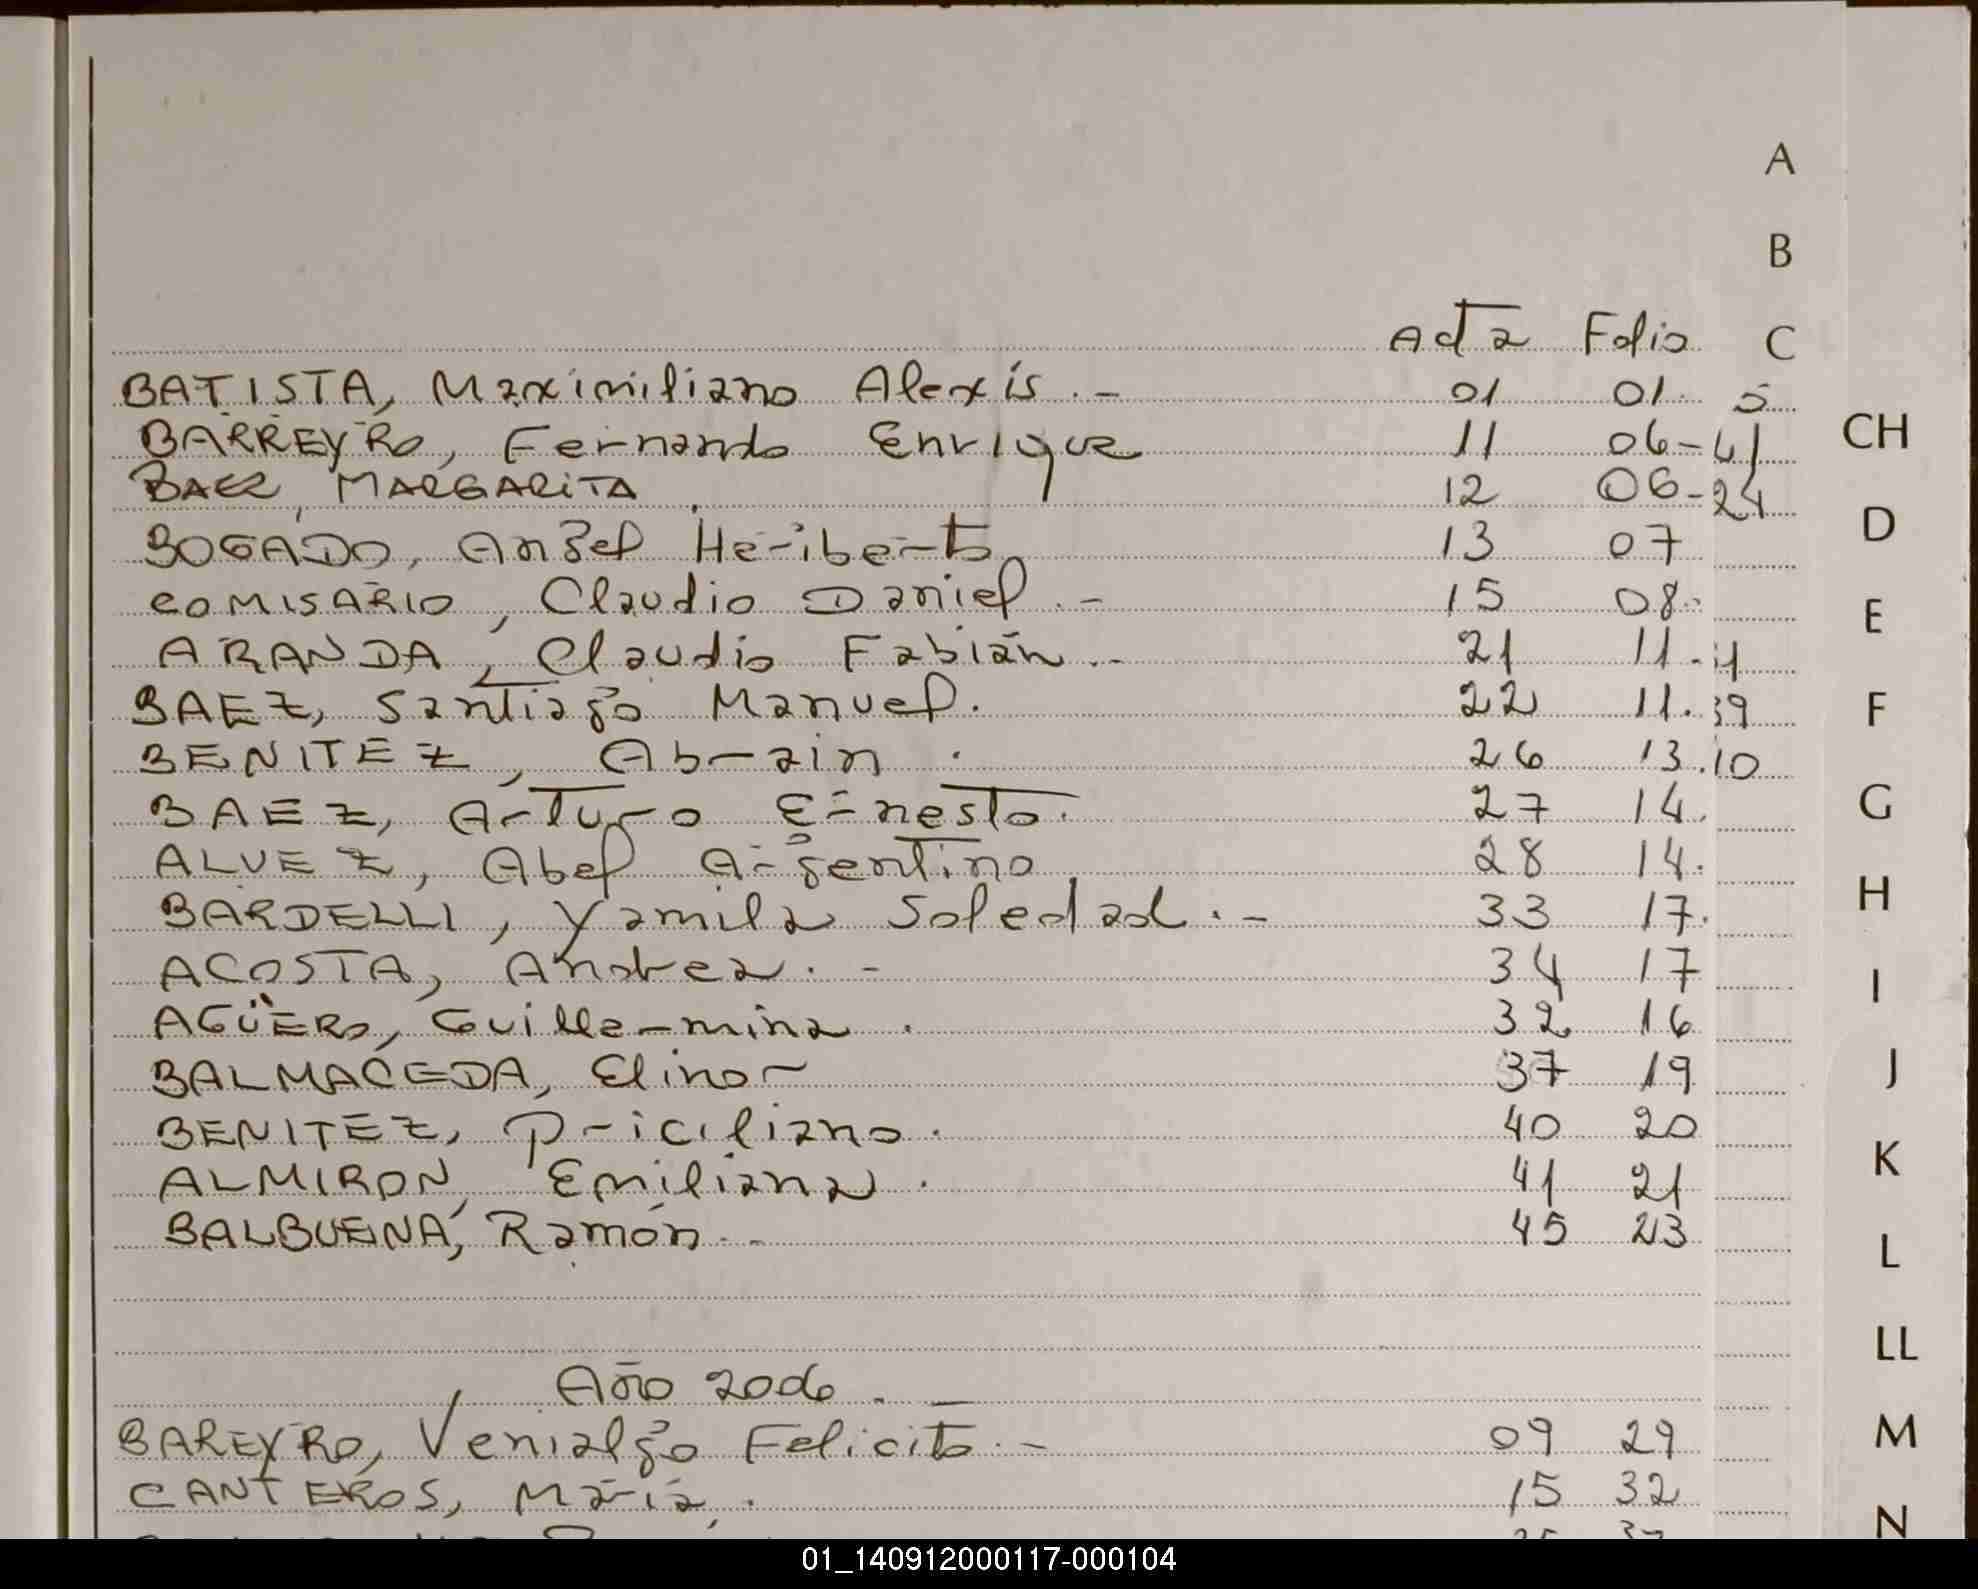 A
B
Acta Folio C
BATISTA, Maximiliano Alexis.- 01 01
BARREYRO, Fernando Enrique 11 06-41
CH
BAEZ, MARGARITA 12 06-24
D
BOGADO, Angel Heriberto 13 07
COMISARIO, Claudio Daniel.- 15 08.
E
ARANDA, Claudio Fabián.- 21 11.
BAEZ, Santiago Manuel. 22 11. 39
F
BENITEZ, Abrain. 26 13.10
BAEZ, Arturo Ernesto. 27 14.
G
ALVEZ, Abel Argentino 28 14.
BARDELLI, Yamila Soledad.- 33 17.
H
ACOSTA, Andrea.- 34 17
I
AGÜERO, Guillermina. 32 16
BALMACEDA, Elinor 37 19
J
BENITEZ, Priciliano. 40 20
K
ALMIRON, Emiliana. 41 21
BALBUENA, Ramón.- 45 23
L
LL
Año 2006.
BAREYRO, Venialgo Felicita.- 09 29
M
CANTEROS, María. 15 32
N
01_140912000117-000104